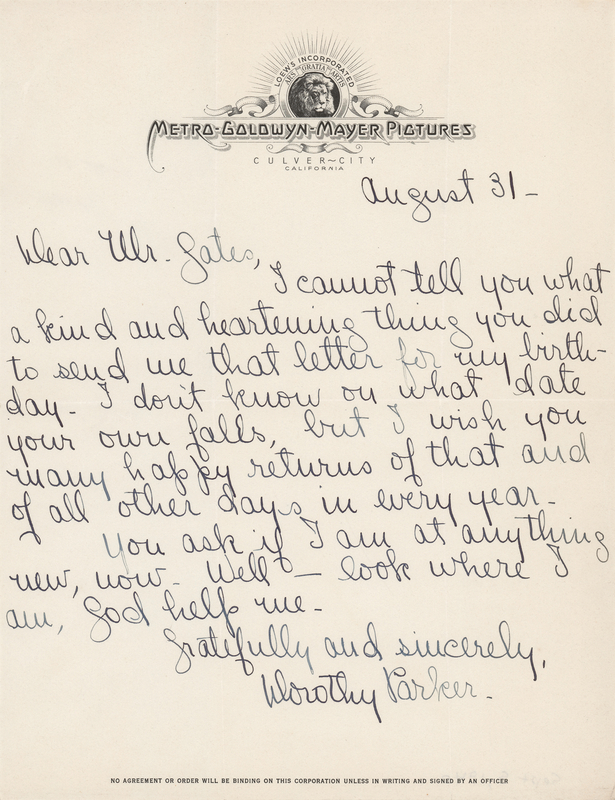 LOEW'S INCORPORATED
ARS GRATIA ARTIS
METRO-GOLDWYN-MAYER PICTURES
CULVER~CITY
CALIFORNIA
August 31-
Dear Mr. Gates,
I cannot tell you what
a kind and heartening thing you did
to send me that letter for my birth-
day- I don't know on what date
your own falls, but I wish you
many happy returns of that and
of all other days in every year-
You ask if I am at anything
new, now- Well — look where I
am, God help me-
Gratefully and sincerely,
Dorothy Parker-
NO AGREEMENT OR ORDER WILL BE BINDING ON THIS CORPORATION UNLESS IN WRITING AND SIGNED BY AN OFFICER